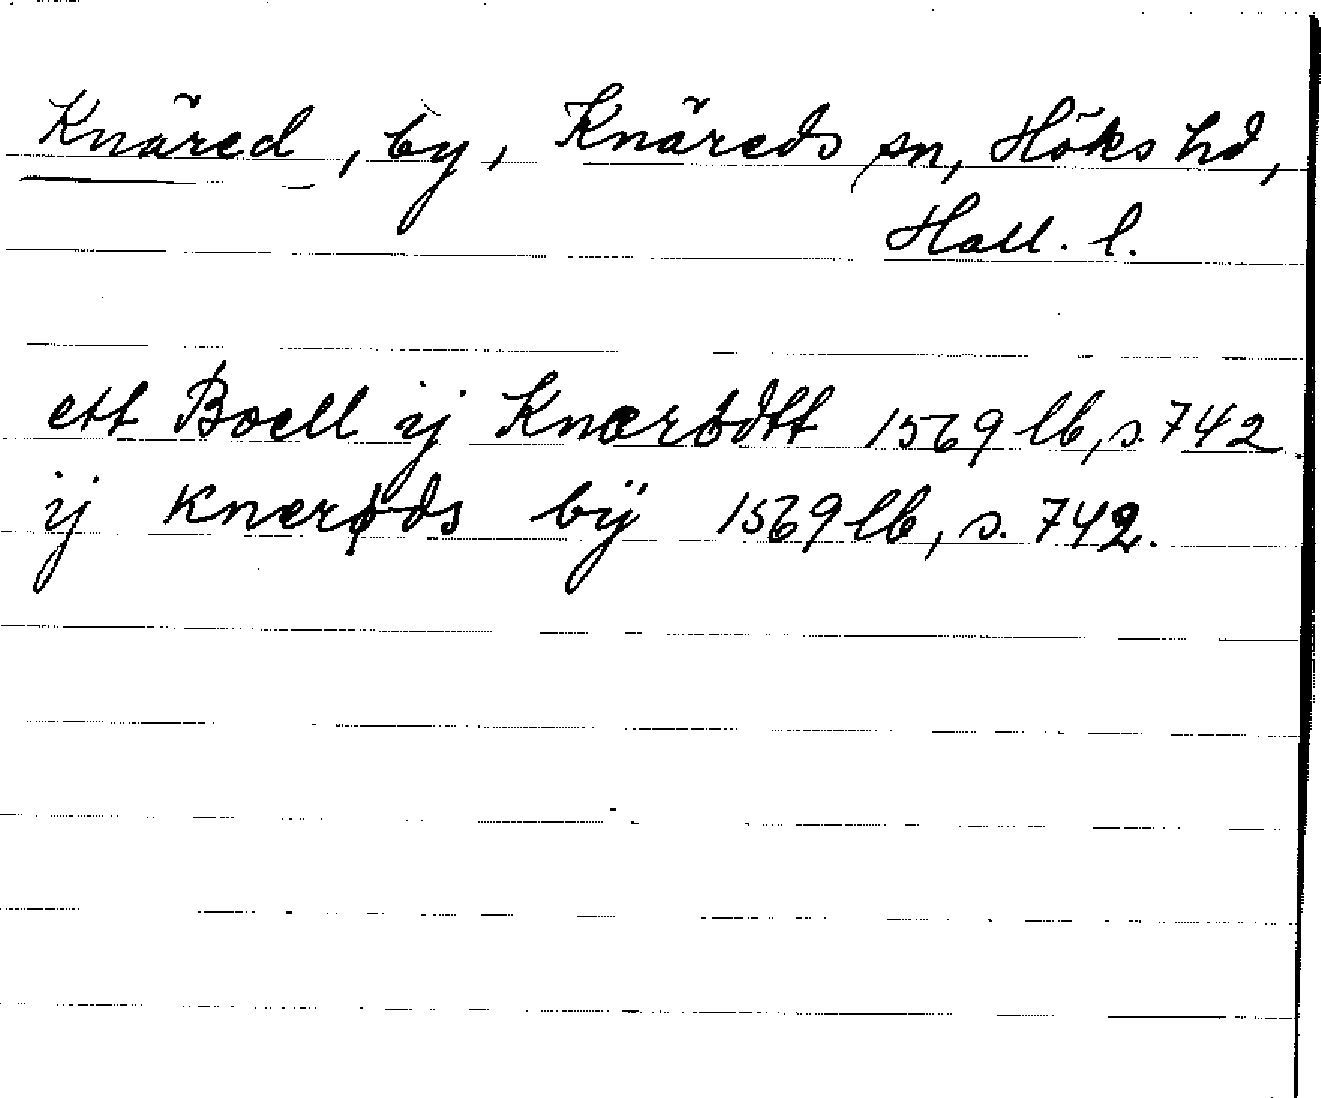 Knäred, by, Knäreds sn, Höks hd,
Hall. l.
ett Boell ij Knærødtt 1569 lb, s. 742
ij Knærøds bÿ 1569 lb, s. 742.